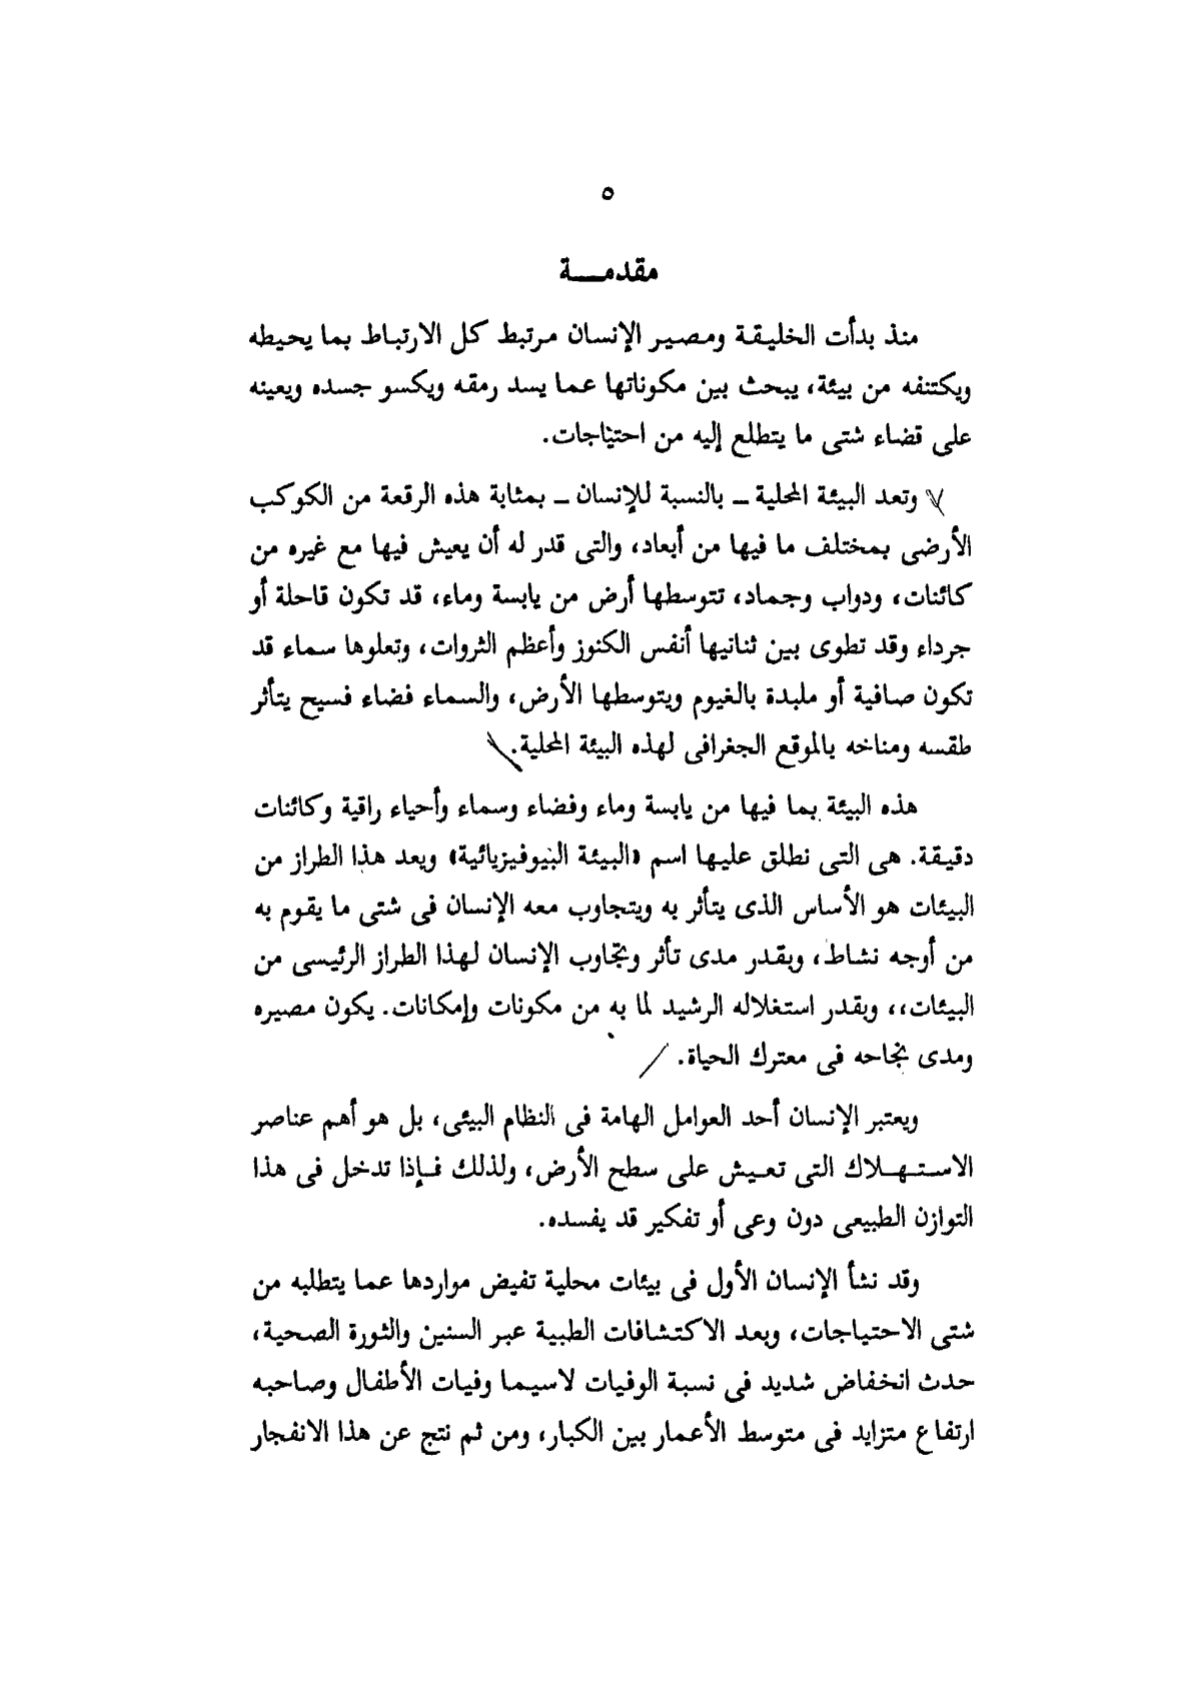 ٥
مقدمـــة
منذ بدأت الخليقة ومصير الإنسان مرتبط كل الارتباط بما يحيطه
ويكتنفه من بيئة، يبحث بين مكوناتها عما يسد رمقه ويكسو جسده ويعينه
على قضاء شتى ما يتطلع إليه من احتياجات.
وتعد البيئة المحلية ــ بالنسبة للإنسان ــ بمثابة هذه الرقعة من الكوكب
الأرضى بمختلف ما فيها من أبعاد، والتى قدر له أن يعيش فيها مع غيره من
كائنات، ودواب وجماد، تتوسطها أرض من يابسة وماء، قد تكون قاحلة أو
جرداء وقد تطوى بين ثنانيها أنفس الكنوز وأعظم الثروات، وتعلوها سماء قد
تكون صافية أو ملبدة بالغيوم ويتوسطها الأرض، والسماء فضاء فسيح يتأثر
طقسه ومناخه بالموقع الجغرافى لهذه البيئة المحلية.
هذه البيئة بما فيها من يابسة وماء وفضاء وسماء وأحياء راقية وكائنات
دقيقة. هى التى نطلق عليها اسم «البيئة البيوفيزيائية» ويعد هذا الطراز من
البيئات هو الأساس الذى يتأثر به ويتجاوب معه الإنسان فى شتى ما يقوم به
من أوجه نشاط، وبقدر مدى تأثر وتجاوب الإنسان لهذا الطراز الرئيسى من
البيئات،، وبقدر استغلاله الرشيد لما به من مكونات وإمكانات. يكون مصيره
ومدى نجاحه فى معترك الحياة.
ويعتبر الإنسان أحد العوامل الهامة فى النظام البيئى، بل هو أهم عناصر
الاستهلاك التى تعيش على سطح الأرض، ولذلك فإذا تدخل فى هذا
التوازن الطبيعى دون وعى أو تفكير قد يفسده.
وقد نشأ الإنسان الأول فى بيئات محلية تفيض مواردها عما يتطلبه من
شتى الاحتياجات، وبعد الاكتشافات الطبية عبر السنين والثورة الصحية،
حدث انخفاض شديد فى نسبة الوفيات لاسيما وفيات الأطفال وصاحبه
ارتفاع متزايد فى متوسط الأعمار بين الكبار، ومن ثم نتج عن هذا الانفجار